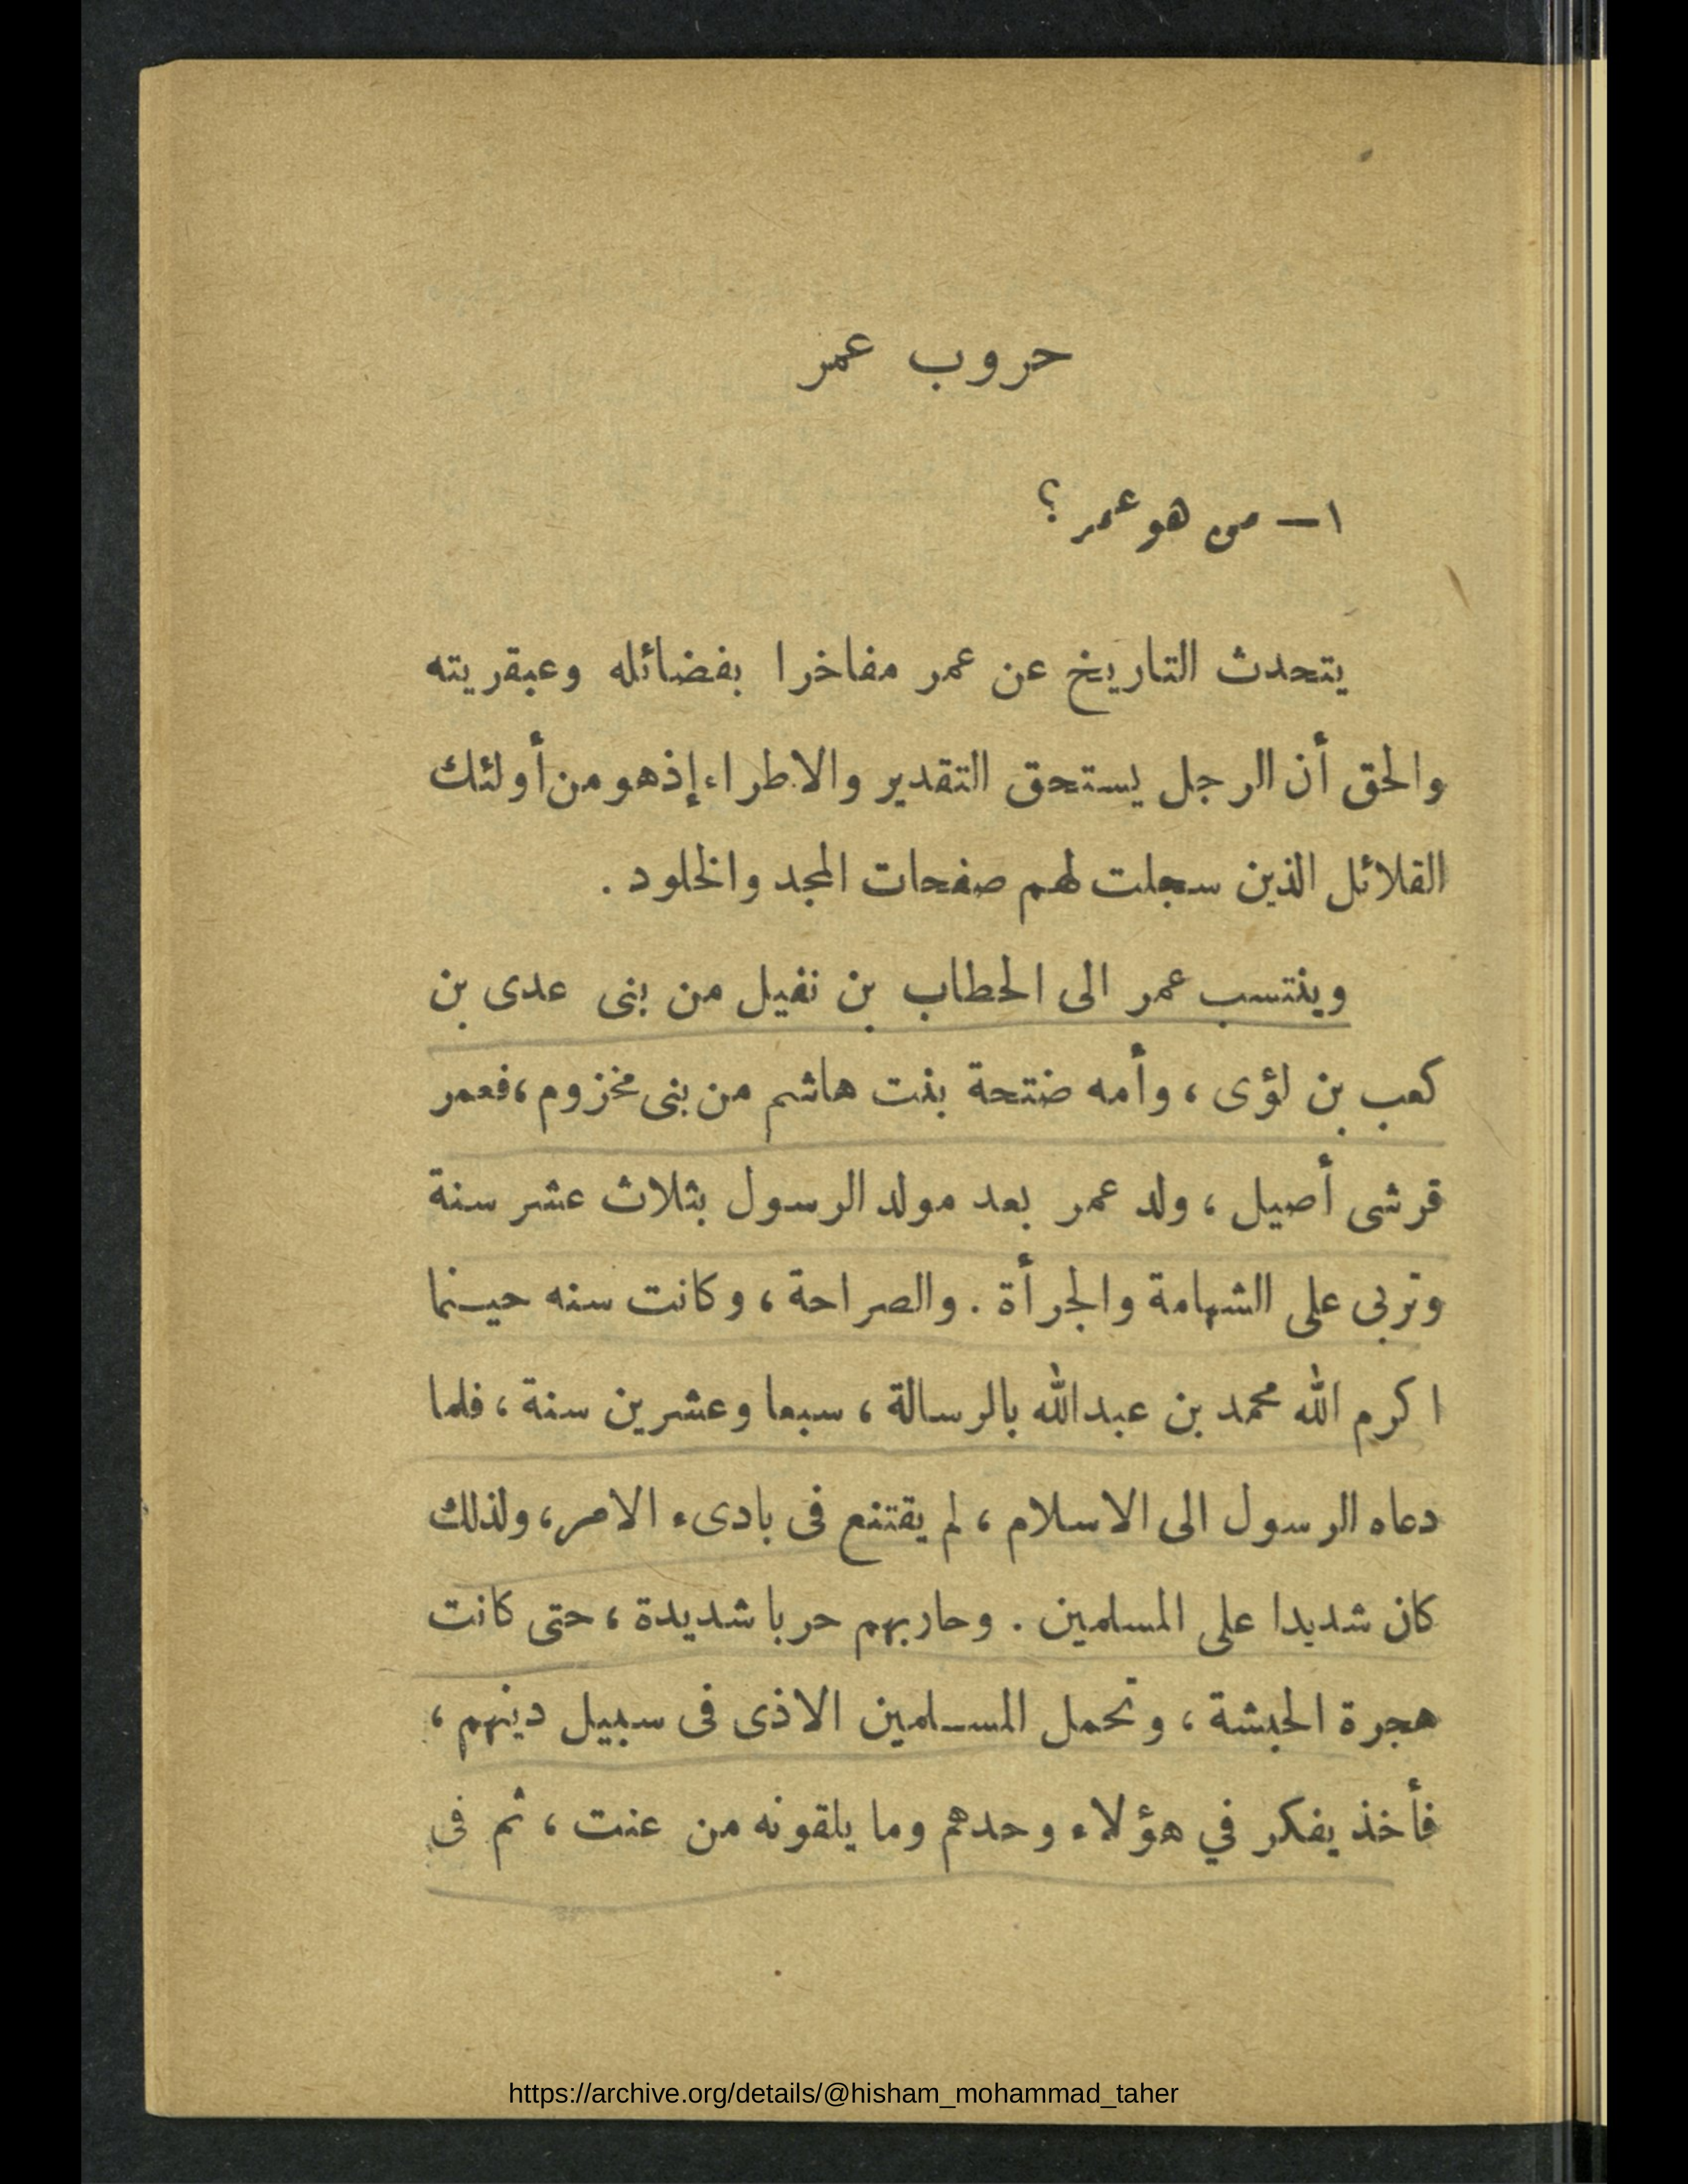 حروب عمر
١ — من هو عمر ؟
يتحدث التاريخ عن عمر مفاخرا بفضائله وعبقريته
والحق أن الرجل يستحق التقدير والاطراء إذ هو من أولئك
القلائل الذين سجلت لهم صفحات المجد والخلود .
وينتسب عمر الى الحطاب بن نفيل من بنى عدى بن
كعب بن لؤى ، وأمه ضتحة بنت هاشم من بنى مخزوم ، فعمر
قرشى أصيل ، ولد عمر بعد مولد الرسول بثلاث عشر سنة
وتربى على الشهامة والجرأة . والصراحة ، وكانت سنه حينما
اكرم الله محمد بن عبدالله بالرسالة ، سبعا وعشرين سنة ، فلما
دعاه الرسول الى الاسلام ، لم يقتنع فى بادىء الامر ، ولذلك
كان شديدا على المسلمين . وحاربهم حربا شديدة ، حتى كانت
هجرة الحبشة ، وتحمل المسلمين الاذى فى سبيل دينهم ،
فأخذ يفكر في هؤلاء وحدهم وما يلقونه من عنت ، ثم فى
https://archive.org/details/@hisham_mohammad_taher